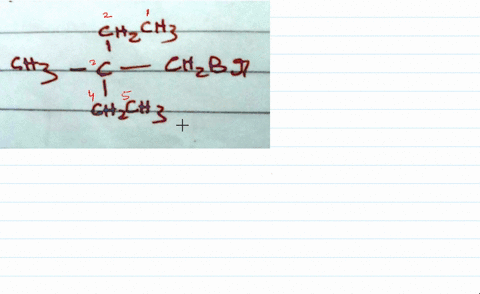 2 1
CH2CH3
CH3 - 3C - CH2Br
4 5
CH2CH3